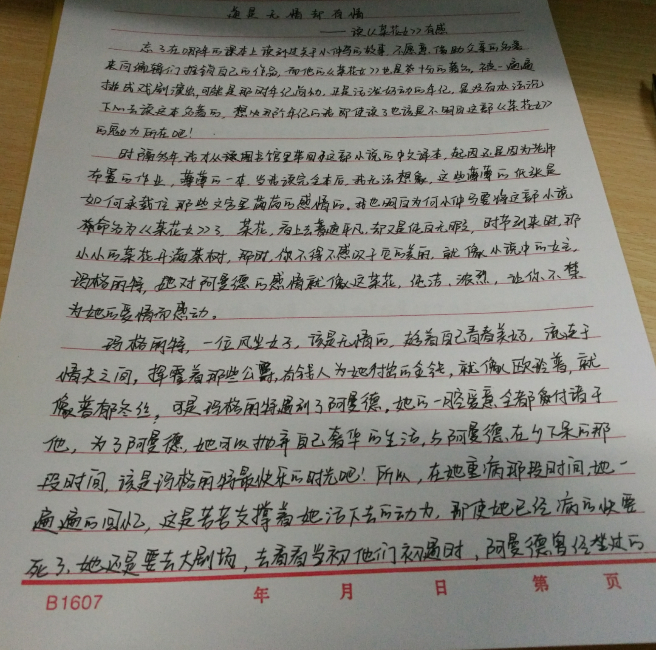 道是无情却有情
——读《茶花女》有感
忘了在哪年的课本上读到过关于小仲马的故事，不愿意借助父亲的名声
来向编辑们推销自己的作品，而他的《茶花女》也是十分的著名，被一遍遍
排成戏剧演出，可能是那时年纪尚幼，正是活泼好动的年纪，是没有办法沉
下心去读这本名著的，想必那个年纪的我即使读了也该是不明白这部《茶花女》
的感动所在吧！
时隔多年，我才从读图书馆里拿回这部小说的中文译本，起因还是因为老师
布置的作业，薄薄的一本，当我读完全本后，我无法想象，这些薄薄的纸张是
如何承载住那些文字里满满的感情的。我也明白为何小仲马要将这部小说
命名为《茶花女》了，茶花，看上去普通平凡，却又是纯白无瑕，时节到来时，那
小小的茶花开满茶树，那时，你不得不感叹于它的美丽，就像小说中的女主
玛格丽特，她对阿曼德的感情就像这茶花，纯洁、浓烈，让你不禁
为她的爱情而感动。
玛格丽特，一位风尘女子，该是无情的，趁着自己青春美好，流连于
情夫之间，挥霍着那些公爵，有钱人为她付出的金钱，就像欧论普，就
像普郁冬丝，可是玛格丽特遇到了阿曼德，她的一腔爱意全部交付诸于
他，为了阿曼德，她可以抛弃自己奢华的生活，与阿曼德在乡下呆的那
段时间，该是玛格丽特最快乐的时光吧！所以，在她重病那段时间，她一
遍遍的回忆，这是苦苦支撑着她活下去的动力，即使她已经病的快要
死了，她还是要去大剧场，去看看当初他们初遇时，阿曼德曾经坐过的
B1607 年 月 日 第 页